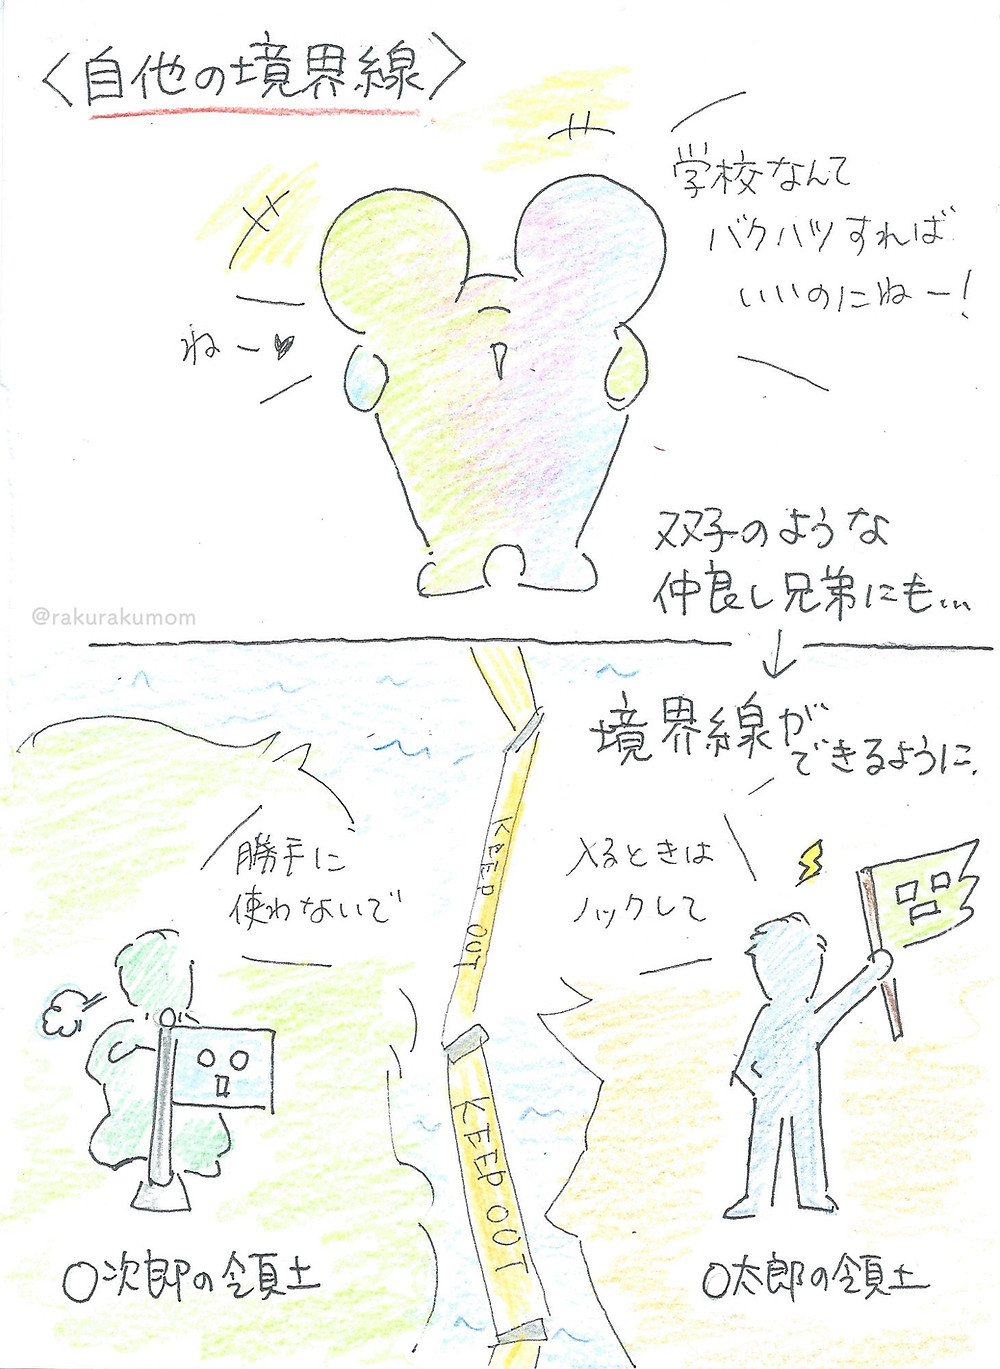 〈自他の境界線〉
学校なんて
バクハツすれば
いいのにねー!
ねー♥
双子のような
仲良し兄弟にも...
@rakurakumom
↓
境界線が
できるように.
勝手に
使わないで
入るときは
ノックして
KEEP OUT
KEEP OUT
〇次郎の領土
〇太郎の領土